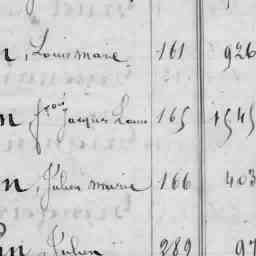 n, Louis marie 161 926
n françois Jacques Louis 165 1545
n, Julien marie 166 403
in Julien 289 97